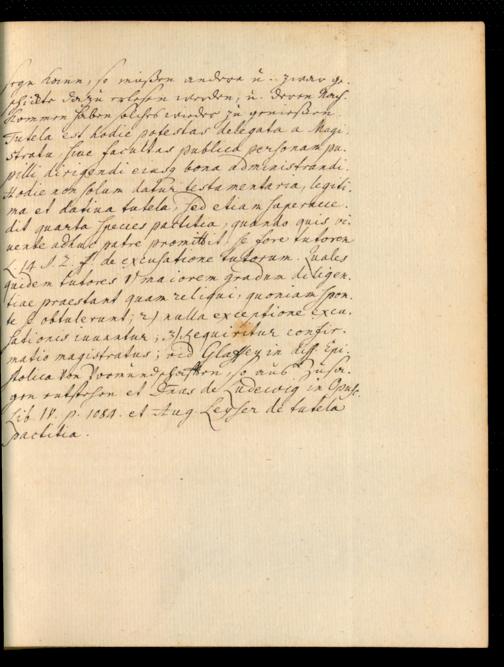 seyn kann, so müßen andere u. zwar ge-
schickte dazu erlesen werden, u. deren Nach-
kommen haben solches wieder zu genießen.
Tutela est hodie potestas delegata a Magi-
stratu, sive facultas publica personam pu-
pilli dirigendi eiusq bona administrandi.
Hodie non solum datur testamentaria, legiti-
ma et dativa tutela, sed etiam superacce-
dit quarta species pactitia, quando quis vi-
vente adhuc patre promittit, se fore tutorem
L. 14 §. 2. ff. de excusatione tutorum. Quales
quidem tutores 1) maiorem gradum diligen-
tiae praestant quam reliqui, quoniam spon-
te se obtulerunt; 2) nulla exceptione excu-
sationis iuvantur; 3) requiritur confir-
matio magistratus; vid Glaffey in diss. Epi-
stolica von Vormundschafften, so aus Zusa-
gen entstehen et Dnus de Ludewig in Opusc.
Lib IV. p. 1084. et Aug Leyser de tutela
pactitia.